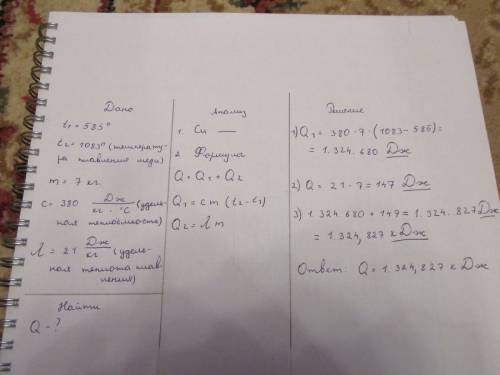 Дано
t₁ = 585°
t₂ = 1083° (температу-
ра плавления меди)
m = 7 кг.
c = 380 Дж/кг · °C (удель-
ная теплоёмкость)
Л = 21 Дж/кг (удель-
ная теплота плав-
ления)
Найти
Q - ?
Анализ
1. Си —
2. Формулы
Q = Q₁ + Q₂
Q₁ = cm (t₂ - t₁)
Q₂ = Л m
Решение
1) Q₁ = 380 · 7 · (1083 - 585) =
= 1.324.680 Дж
2) Q = 21 · 7 = 147 Дж
3) 1.324 680 + 147 = 1.324.827 Дж
= 1.324,827 к Дж
Ответ: Q = 1.324,827 к Дж